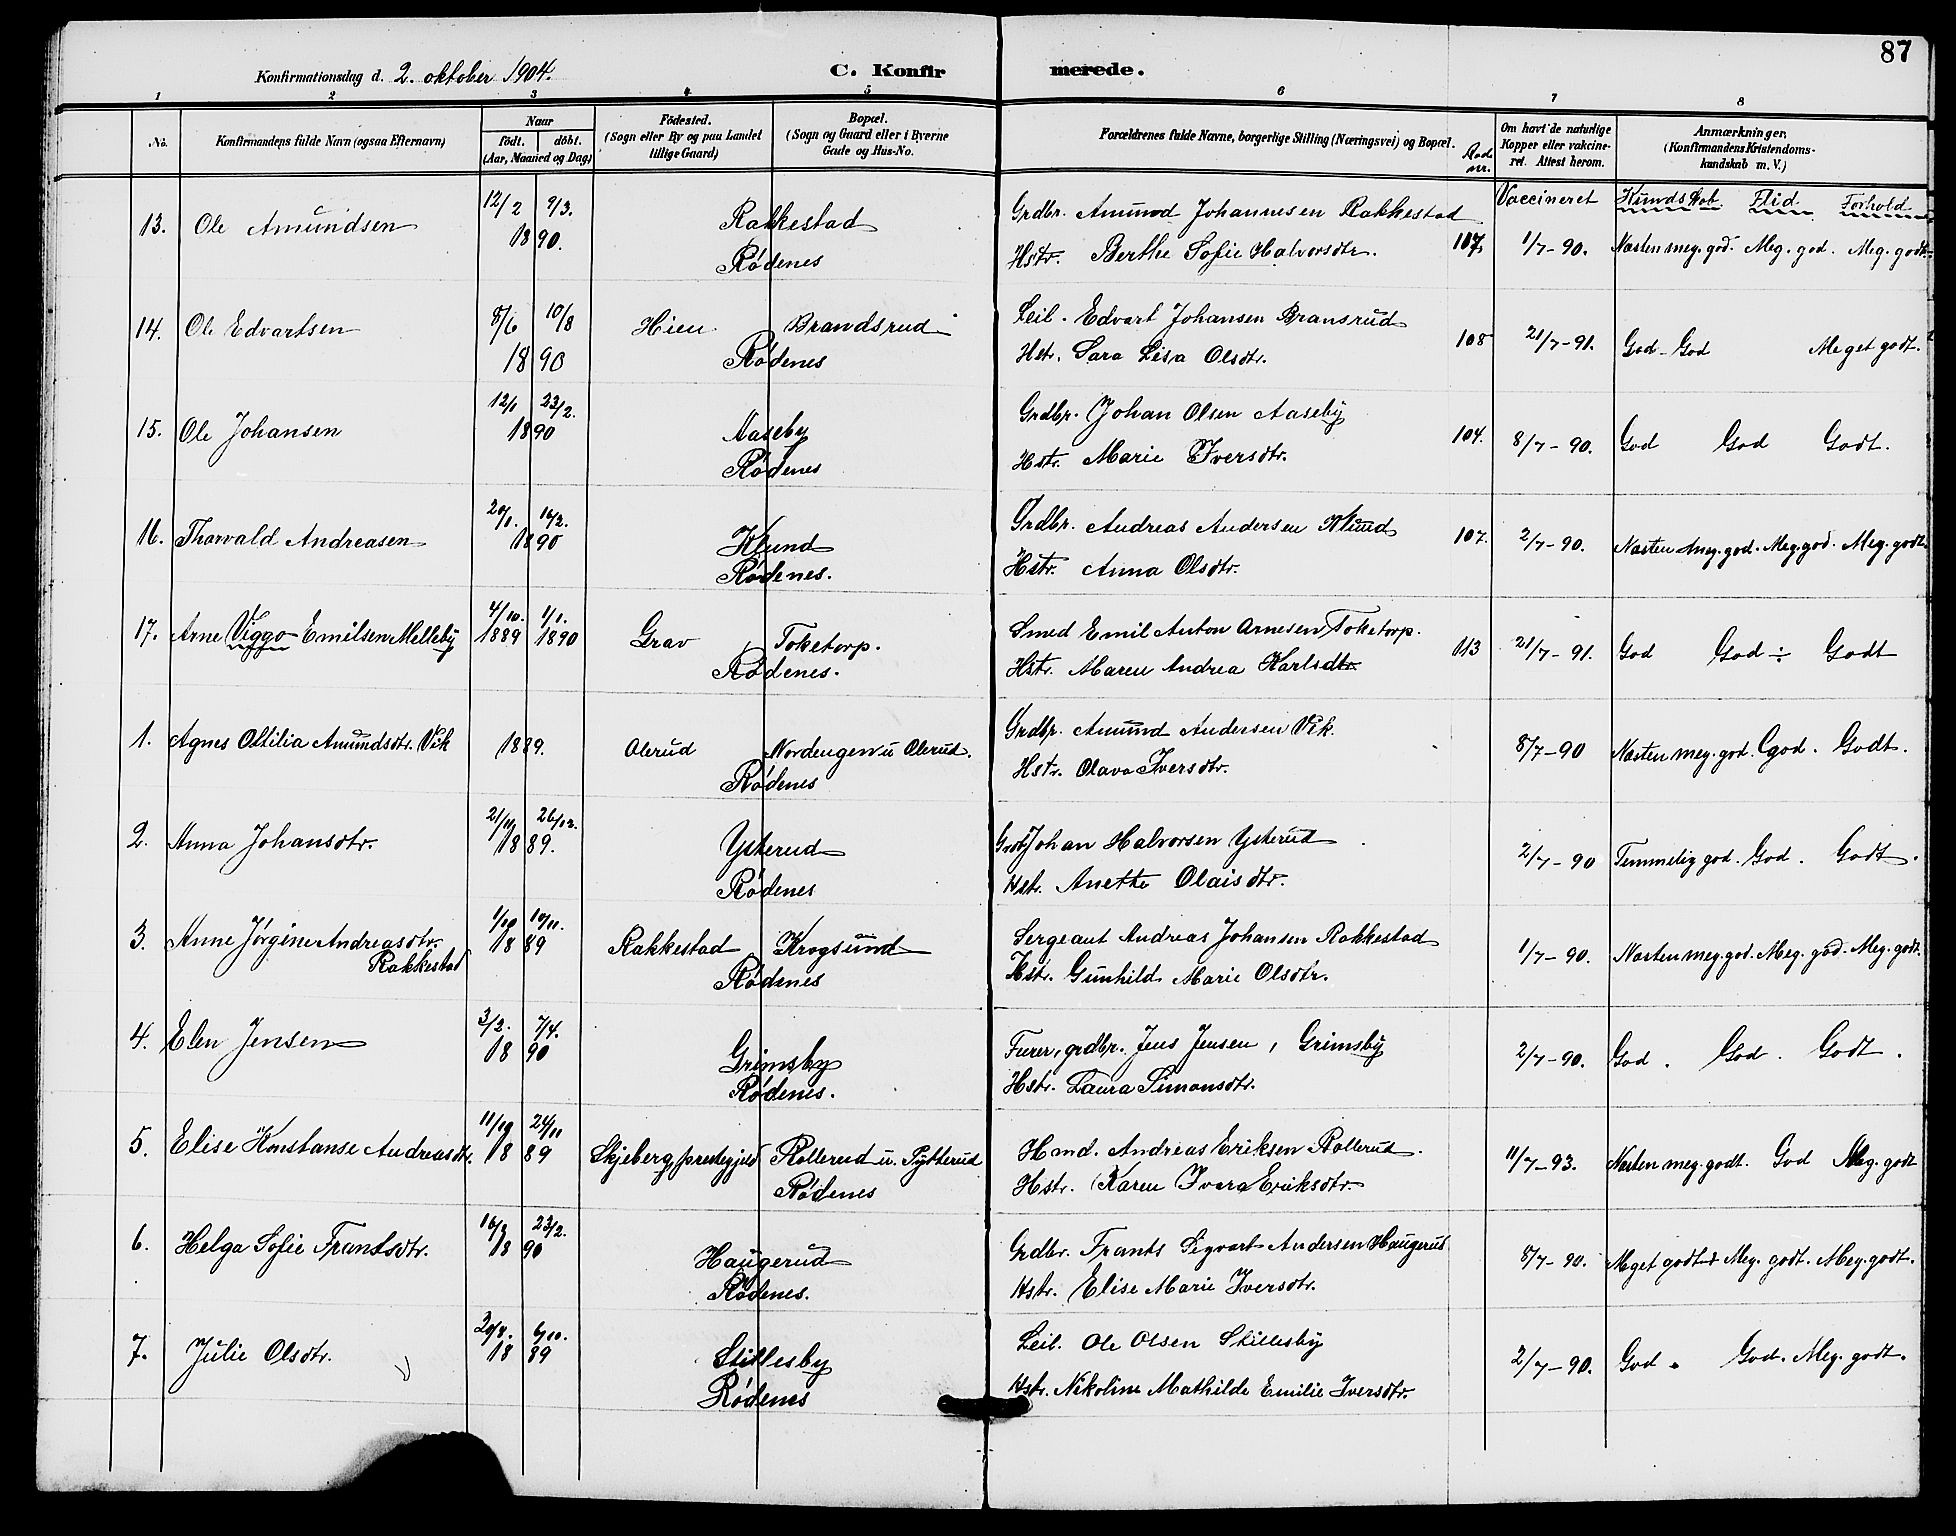 87
Konfirmationsdag d. 2. oktober 1904.
C. Konfirmerede.
1 2 3 4 5 6 7 8
No.
Konfirmandens fulde Navn (ogsaa Efternavn)
Naar
født. døbt.
(Aar, Maaned og Dag)
Fødested.
(Sogn eller By og paa Landet
tillige Gaard)
Bopæl.
(Sogn og Gaard eller i Byerne
Gade og Hus-No.
Forældrenes fulde Navne, borgerlige Stilling (Næringsvei) og Bopæl.
Om havt de naturlige
Kopper eller vakcine-
ret. Attest herom.
Anmærkninger.
(Konfirmandens Kristendoms-
kundskab m. V.)
Vaccineret Kundskab Flid Forhold
13. Ole Amundsen 12/2 9/3. Rakkestad Grdbr. Amund Johannesen Rakkestad
1890. Rødenes Hstr. Berthe Sofie Halvorsdtr. 107. 1/7-90. Næsten meg. god. Meg. god. Meg. godt.
14. Ole Edvartsen 8/6 10/8 Hien Brandsrud Leil. Edvart Johansen Bransrud
1890 Rødenes Hstr. Sara Lisa Olsdtr. 108 21/7-91. God - God Meget godt.
15. Ole Johansen 12/1 23/2. Aaseby Grdbr. Johan Olsen Aaseby
1890 Rødenes Hstr. Marie Iversdtr. 104. 8/7-90. God God Godt.
16. Thorvald Andreasen 20/1. 16/2. Klund Grdbr. Andreas Andersen Klund
1890 Rødenes. Hstr. Anna Olsdtr. 107. 2/7-90. Næsten meg. god. Meg. god. Meg. godt.
17. Arne Viggo Emilsen Melleby 4/10. 1/1. Grav Toketorp. Smed Emil Anton Arnesen, Toketorp.
1889 1890 Rødenes. Hstr. Maren Andrea Karlsdtr. 113 21/7-91. God God ÷ Godt
1. Agnes Ottilia Amundsdtr. Vik 1889. Olerud Nordengen u Olerud. Grdbr. Amund Andersen Vik.
Rødenes Hstr. Olava Iversdtr. 8/7-90 Næsten meg. god. god. Godt.
2. Anna Johansdtr. 21/11 26/12. Ysterud Grdb Johan Halvorsen Ysterud
1889. Rødenes Hstr. Anette Olaisdtr. 2/7-90 Temmelig god. God. Godt.
3. Anne Jørgine Andreasdtr. 1/10 10/11. Rakkestad Krogsund Sergeant Andreas Johansen Rakkestad
Rakkestad 1889 Rødenes Hstr. Gunhild Marie Olsdtr. 1/7-90. Næsten meg. god. Meg. god. Meg. godt.
4. Elen Jensen 3/2. 7/4. Grimsby Furer, grdbr. Jens Jensen, Grimsby
1890 Rødenes. Hstr. Laura Simonsdtr. 2/7-90. God. God. Godt.
5. Elise Konstanse Andreasdtr. 11/10 24/11 Skjeberg prestegjeld Rollerud u. Tytterud Hmd. Andreas Eriksen Rollerud.
1889 Rødenes Hstr. Karen Ivara Eriksdtr. 11/7-93. Næsten meg. godt. God Meg. godt
6. Helga Sofie Frantsdtr. 23/2. Haugerud Grdbr. Frants Sigvart Andersen Haugerud
1890 Rødenes. Hstr. Elise Marie Iversdtr. 8/7-90. Meget godt Meg. godt. Meg. godt.
7. Julie Olsdtr. 20/8. 6/10. Stillesby Leil. Ole Olsen Skillesby
1889 Rødenes Hstr. Nikoline Mathilde Emilie Iversdtr. 2/7-90. God. God. Meg. godt.